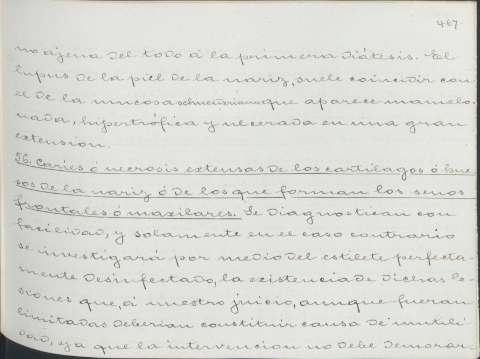 467
no ajena del todo á la primera diátesis. El
lupus de la piel de la nariz, suele coincidir con
el de la mucosa schneideriana que aparece mamelo-
nada, hipertrófica y ulcerada en una gran
extension.
56. Caries ó necrosis extensas de los cartilagos ó hue-
sos de la nariz ó de los que forman los senos
frontales ó maxilares. Se diagnostican con
facilidad, y solamente en el caso contrario
se investigará por medio del estilete perfecta-
mente desinfectado, la existencia de dichas le-
siones que, á nuestro juicio, aunque fueran
limitadas deberian constituir causa de inutili-
dad, ya que la intervencion no debe demorar-